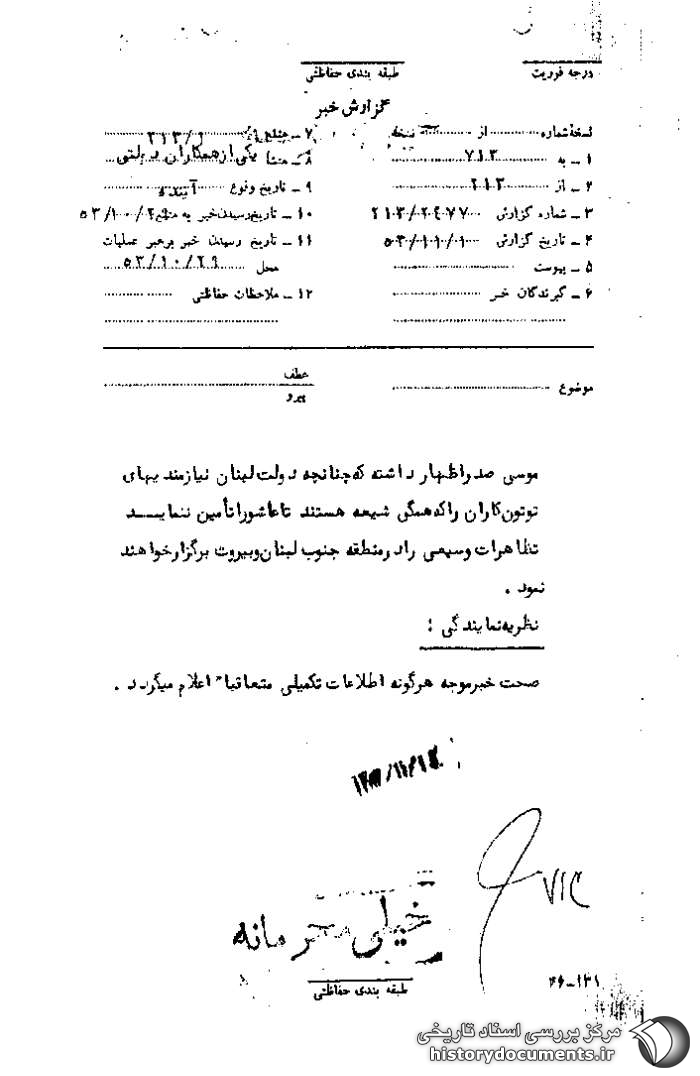 درجه فوریت
طبقه بندی حفاظتی
گزارش خبر
نسخه شماره از نسخه
۱ ـ به ۷۱۳
۲ ـ از ۲۱۳
۳ ـ شماره گزارش ۲۱۳/۲۴۷۷
۴ ـ تاریخ گزارش ۵۳/۱۱/۱
۵ ـ پیوست
۶ ـ گیرندگان خبر
۷ ـ منبع ۲۱۳/۱
۸ ـ منشا یکی از همکاران دولتی
۹ ـ تاریخ وقوع آینده
۱۰ ـ تاریخ رسیدن خبر به منبع
۱۱ ـ تاریخ رسیدن خبر برهبر عملیات
محل ۵۳/۱۰/۲۹
۱۲ ـ ملاحظات حفاظتی
موضوع
عطف
پیرو
موسی صدر اظهار داشته که چنانچه دولت لبنان نیازمندیهای
توتون کاران را که همگی شیعه هستند تا عاشورا تأمین ننماید
تظاهرات وسیعی را در منطقه جنوب لبنان و بیروت برگزار خواهند
نمود .
نظریه نمایندگی :
صحت خبر موجه هرگونه اطلاعات تکمیلی متعاقبا" اعلام میگردد .
۷۱۳
خیلی محرمانه
طبقه بندی حفاظتی
۴۶-۱۳۱
مرکز بررسی اسناد تاریخی
historydocuments.ir